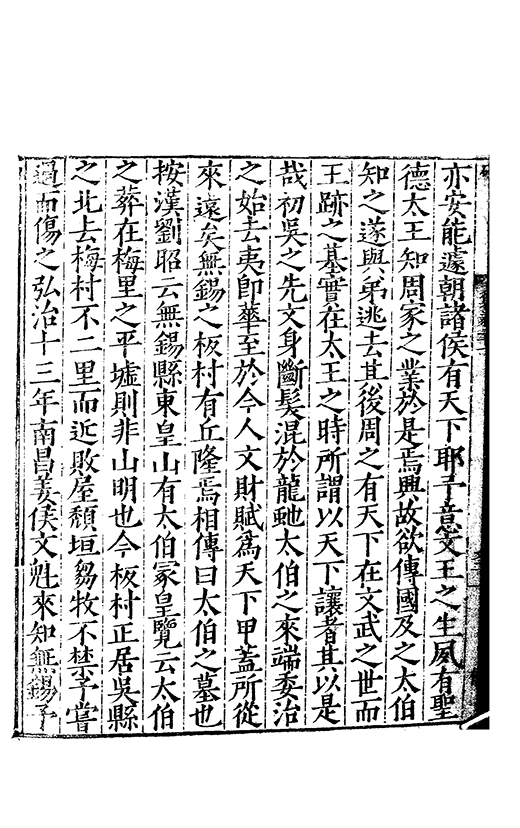 亦安能遽朝諸侯有天下耶予意文王之生夙有聖
德太王知周家之業於是焉興故欲傳國及之太伯
知之遂與弟逃去其後周之有天下在文武之世而
王跡之基實在太王之時所謂以天下讓者其以是
哉初吳之先文身斷髮混於龍虵太伯之來端委治
之始去夷即華至於今人文財賦為天下甲蓋所從
來遠矣無錫之板村有丘隆焉相傳曰太伯之墓也
按漢劉昭云無錫縣東皇山有太伯冢皇覽云太伯
之葬在梅里之平墟則非山明也今板村正居吳縣
之北去梅村不二里而近敗屋頹垣芻牧不禁予嘗
過而傷之弘治十三年南昌姜侯文魁來知無錫予